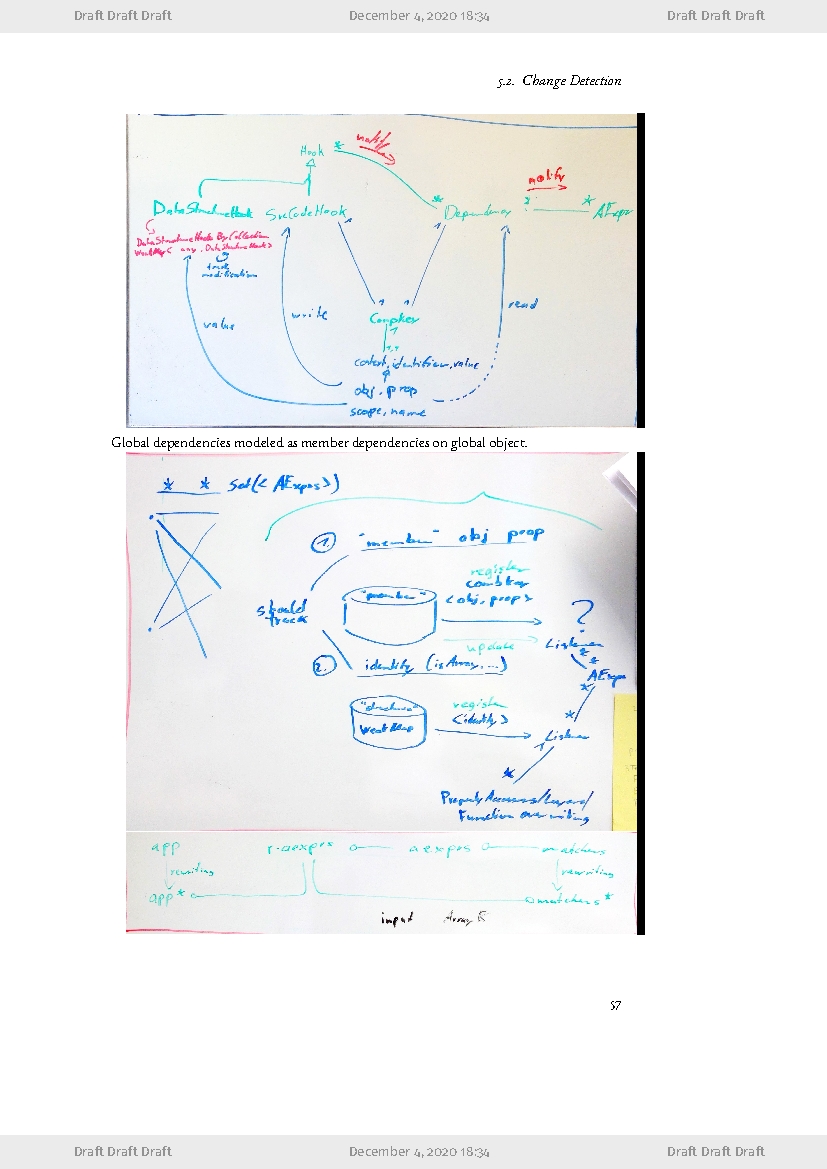 Draft Draft Draft December 4, 2020 18:34 Draft Draft Draft
5.2. Change Detection
Hook * notify
notify
DataStructureHook SrcCodeHook * Dependency * AExpr
DataStructureHooks By Collection
WeakMap< any, DataStructureHook>
track
modification
value write read
CompKey
context, identifier, value
obj, prop
scope, name
Global dependencies modeled as member dependencies on global object.
* * Set(<AExprs>)
1. "member" obj prop
register
combkey
"member" <obj, prop>
should
track
?
update Listener
2. identity (isArray, ...) *
AExpr
*
register
<identity>
WeakMap
*
Listener
*
Property Accessors/Layers/
Function overwriting
app r-aexprs aexprs matchers
rewriting rewriting
app* matchers*
input Array
57
Draft Draft Draft December 4, 2020 18:34 Draft Draft Draft